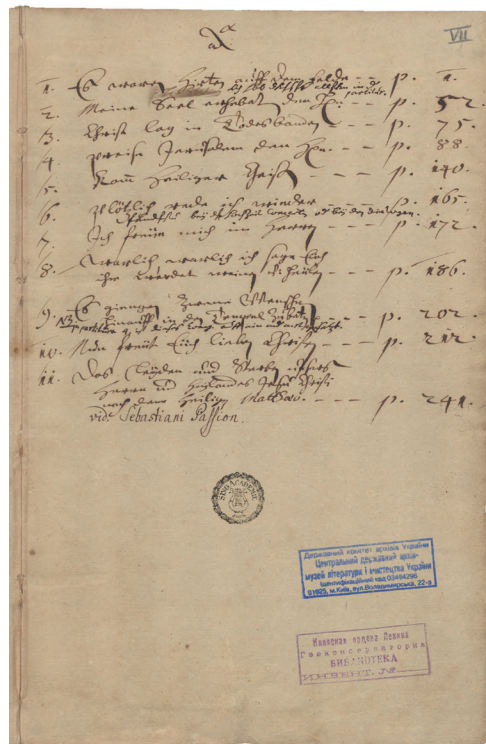 VII
1. Es waren Hirten auff dem felde - - p. 1.
2. Meine Seel erhebet den - - p. 52.
3. Christ lag in Todesbanden - - p. 75.
4. preise Jerusalem den - - p. 88.
5. Kom Heiliger Geist - - - p. 140.
6. plötzlich ich wieder - - - p. 165.
7. Ich freue mich im Herrn - - - p. 172.
8. Warlich warlich ich sage Euch
ihr werdet weinen - - - p. 186.
9. Es giengen zweene Menschen
hinauff in den Tempel p. 202.
10. Nun freut Euch lieben Christen - - p. 212.
11. Das Leyden und Sterben unsers
Herrn und Heilandes Jesu Christi
nach dem Heiligen Mattheo. - - - p. 241.
vid. Sebastiani Passion.
SING-ACADEMIE
Державний комітет архівів України
Центральний державний архів-
музей літератури і мистецтва України
Ідентифікаційний код 03494296
01025, м.Київ, вул.Володимирська, 22-а
Киевская ордена Ленина
Госконсерватория
БИБЛИОТЕКА
ИНВЕНТ. №